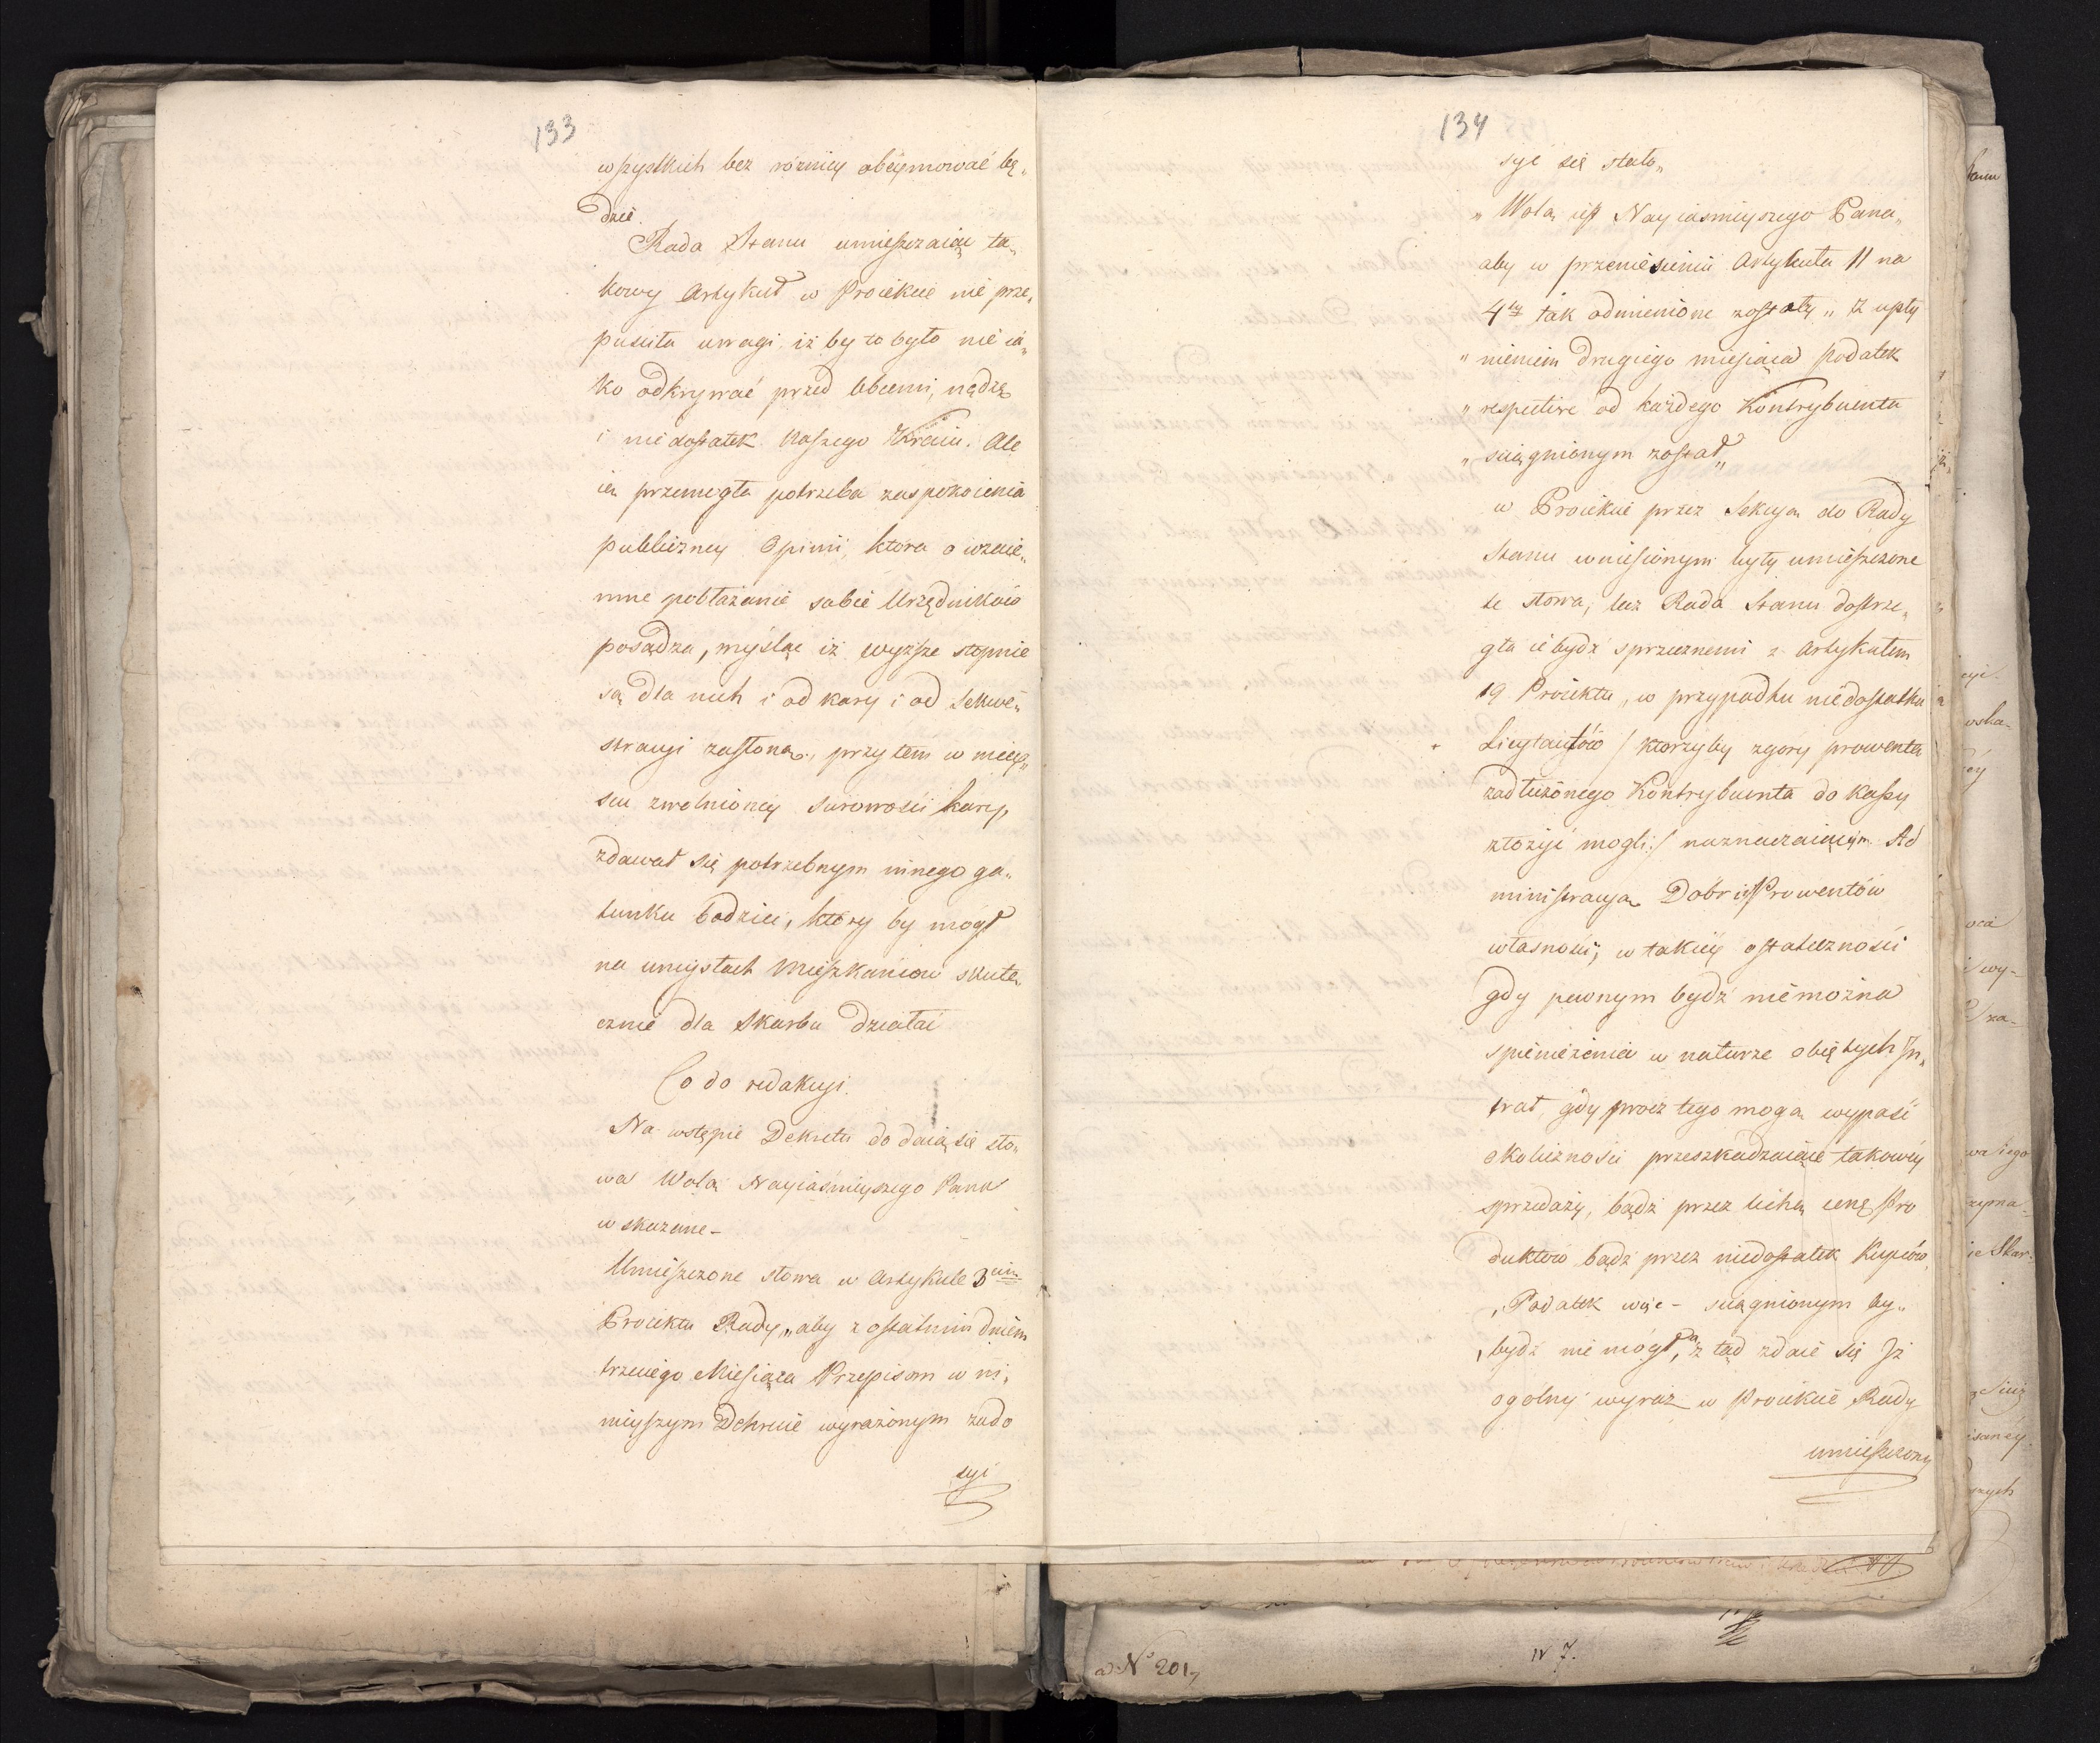 133
wszystkich bez rożnicy obeymować bę„
dzie.
Rada Stanu umieszczaiąc ta„
kowy Artykuł w Proiekcie nie prze„
puściła uwagi iż by to było nieia„
ko odkrywać przed obcemi, nądzę
i niedostatek Naszego Kraiu. Ale
ią przemogła potrzeba zaspokoienia
publiczney Opinii, która o wzaie„
mne pobłażanie sobie Urzędników
posądza, myśląc iż wyższe stopnie
są dla nich i od kary i od sekwe„
stracyi zasłoną, przytem w miey„
scu zwolnioney surowości kary,
zdawał się potrzebnym innego ga„
tunku bodziec, który by mógł
na umysłach Mieszkańców skute„
cznie dla Skarbu działać
Co do redakcyi.
Na wstępie Dekretu dodaią się sło„
wa Wolą Nayiaśnieyszego Pana
wskazane –
Umieszczone słowa w Artykule 3cim
Proiektu Rady, „aby z ostatnim dniem
trzeciego Miesiąca Przepisom w ni„
nieyszym Dekrecie wyrażonym zado
syć
134
syć się stało„
„Wolą iest Nayiaśnieyszego Pana„
aby w przeniesieniu Artykułu 11 na
4ty tak odmienione zostały „Z upły
„nieniem drugiego miesiąca podatek
„respective od każdego Kontrybuenta
„sciągnionym został„
w Proiekcie przez Sekcyą do Rady
Stanu wniesionym były umieszczone
te słowa, lecz Rada Stanu dostrze„
gła ie bydź sprzecznemi z Artykułem
19 Proiektu, w przypadku niedostatku
Licytantów / którzyby zgóry prowenta
zadłużonego Kontrybuenta do Kassy
złożyć mogli:/ naznaczaiącym Ad
ministracyą Dóbr i Prowentów
własności, w takiey ostateczności
gdy pewnym bydź niemożna
spieniężenia w naturze obiętych In„
trat, gdy procz tego mogą wypaść
okoliczności przeszkadzaiące takowey
sprzedaży, bądź przez lichą cenę Pro
duktów bądź przez niedostatek Kupców,
„Podatek więc – sciągnionym by„
„bydź nie mógł, z tąd zdaie się Iż
ogólny wyraz w Proiekcie Rady
umieszczony
N 7.
a N° 201,